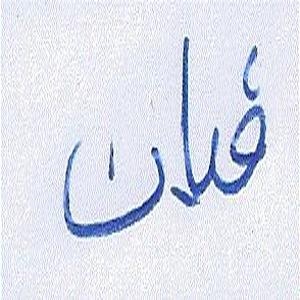 فلان